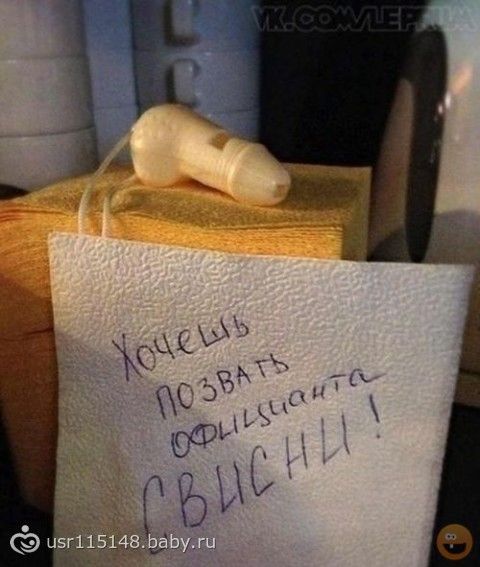 VK.COM/LEPRUM
Хочешь
позвать
официанта
СВИСНИ!
usr115148.baby.ru